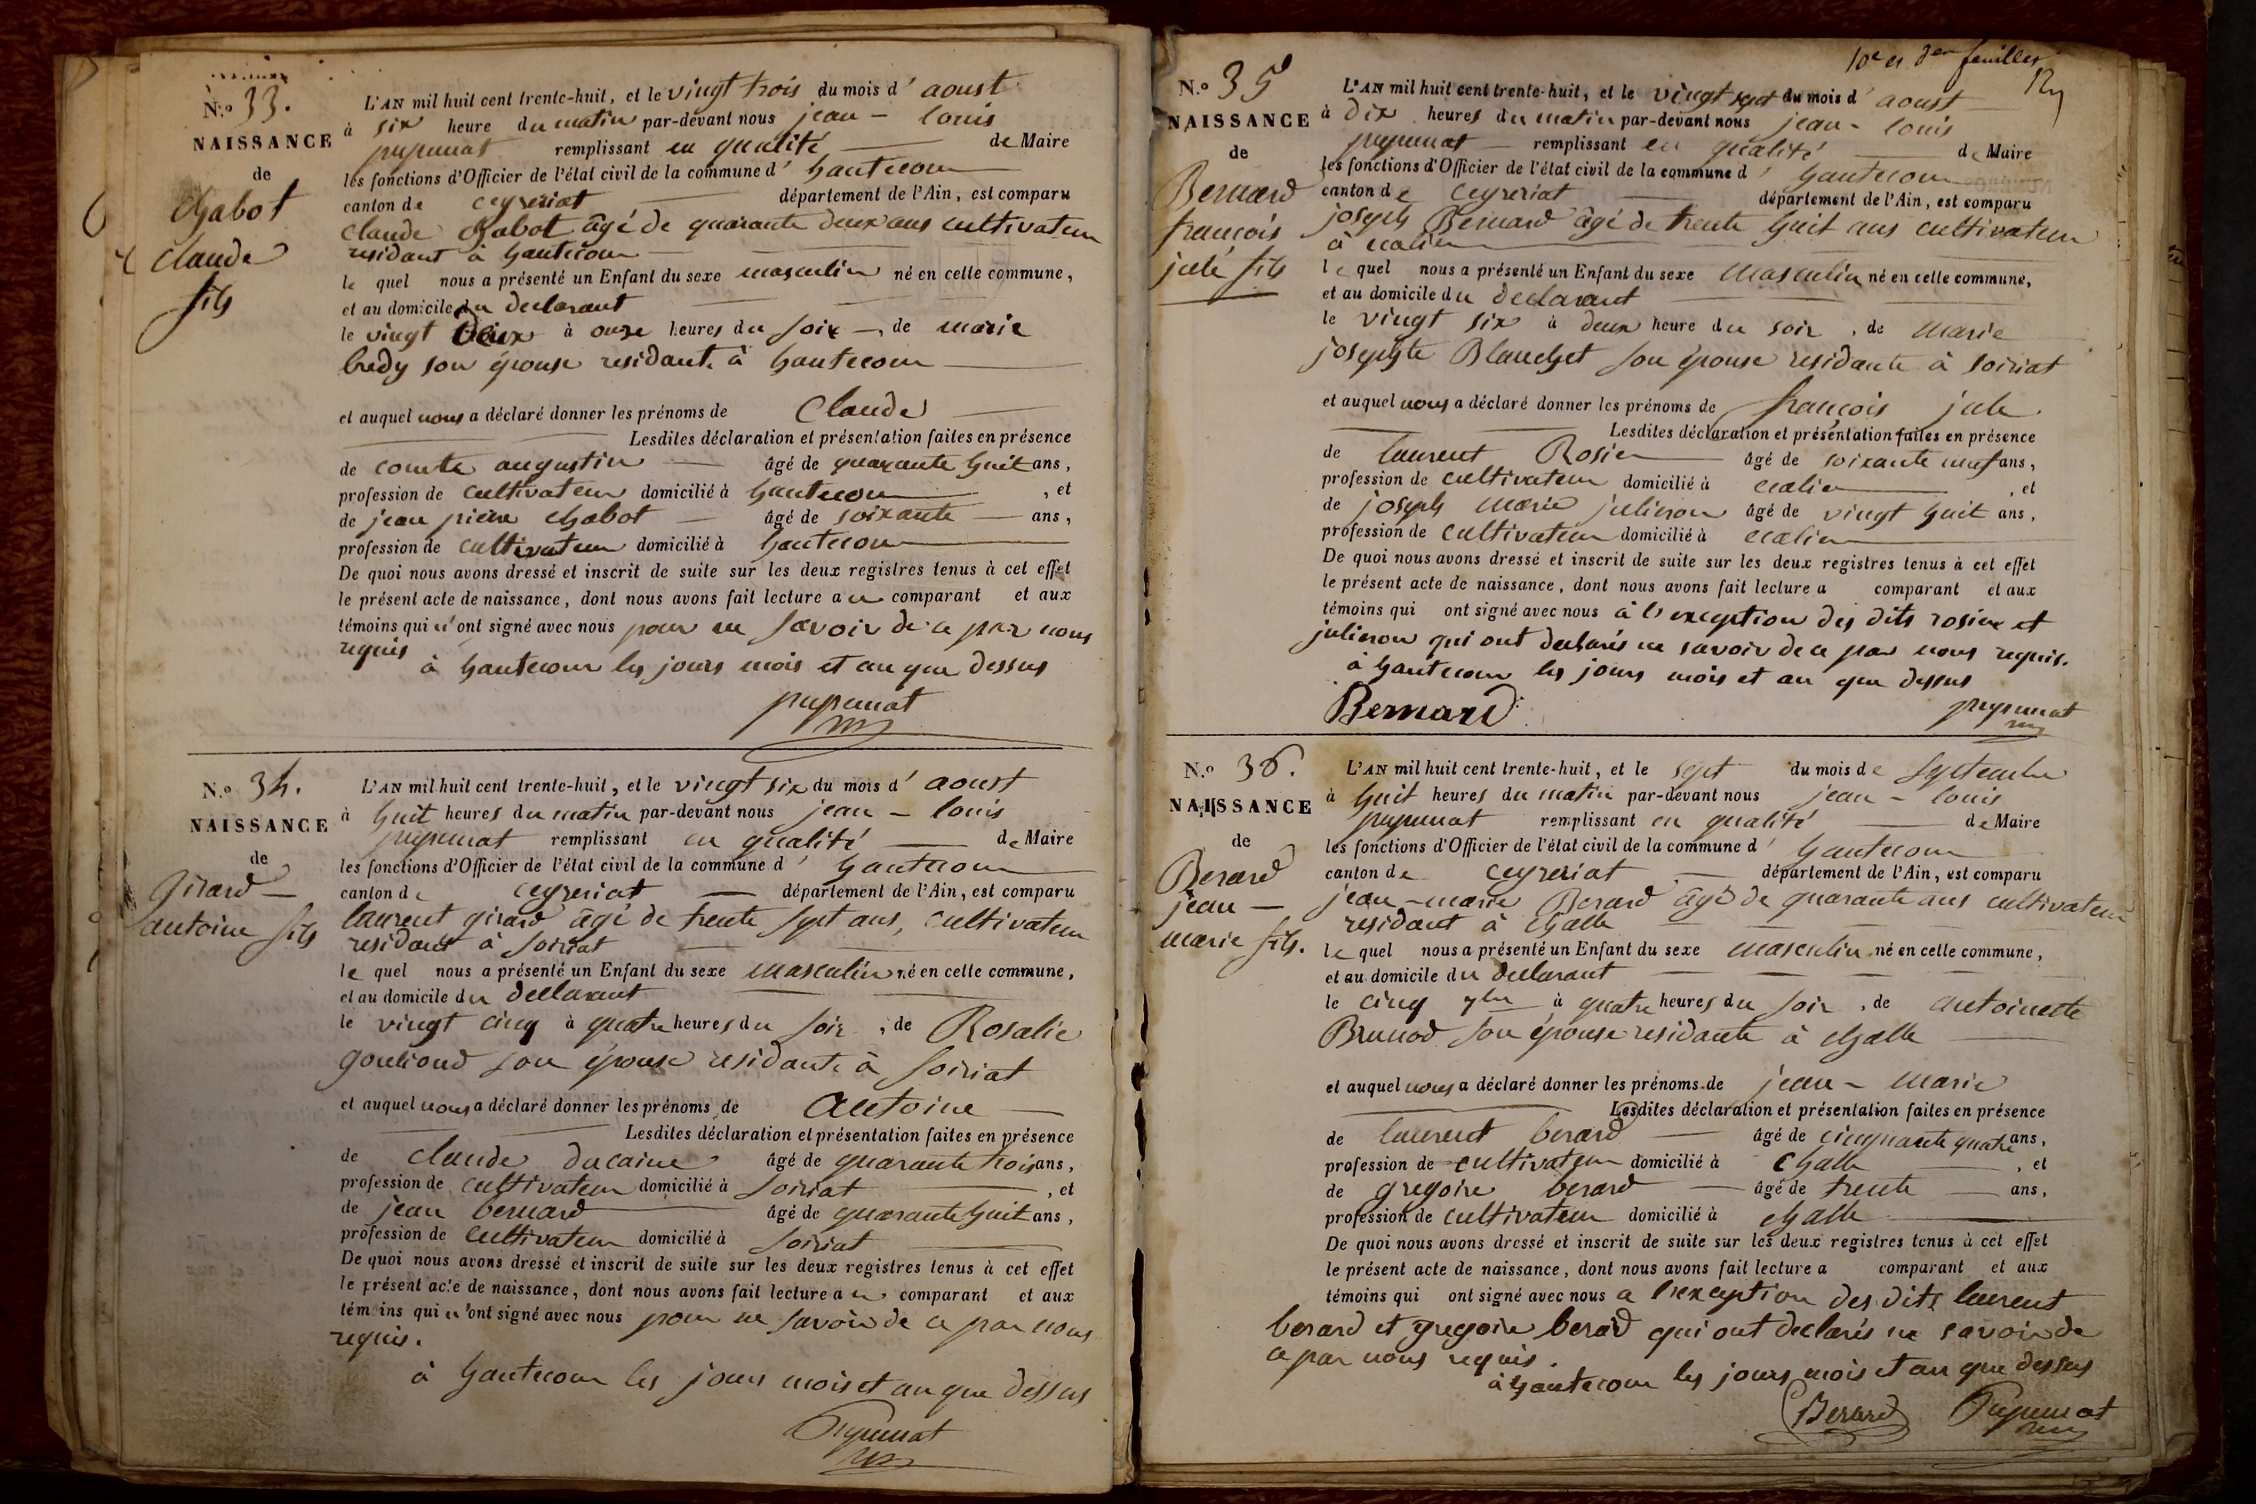 N.o 33.
NAISSANCE
de
Chabot
Claude
fils
L'AN mil huit cent trente-huit, et le vingt trois du mois d' aoust
à six heure du matin par-devant nous jean - louis
pupunat remplissant en qualité de Maire
les fonctions d'Officier de l'état civil de la commune d' hautecour
canton de ceyzeriat département de l'Ain, est comparu
claude chabot âgé de quarante deux ans cultivateur
residant à hautecour
le quel nous a présenté un Enfant du sexe masculin né en celle commune,
et au domicile du declarant
le vingt deux à onze heures du soir, de marie
bredy son épouse residante à hautecour
et auquel nous a déclaré donner les prénoms de Claude
Lesdites déclaration et présentation faites en présence
de comte augustin âgé de quarante huit ans,
profession de cultivateur domicilié à hautecour, et
de jean pierre chabot âgé de soixante ans,
profession de cultivateur domicilié à hautecour
De quoi nous avons dressé et inscrit de suite sur les deux registres tenus à cet effet
le présent acte de naissance, dont nous avons fait lecture au comparant et aux
témoins qui n'ont signé avec nous pour ne savoir de ce par nous
requis
à hautecour les jours mois et an que dessus
pupunat
N.o 34.
NAISSANCE
de
girard
antoine fils
L'AN mil huit cent trente-huit, et le vingt six du mois d' aoust
à huit heures du matin par-devant nous jean - louis
pupunat remplissant en qualité de Maire
les fonctions d'Officier de l'état civil de la commune d' hautecour
canton de ceyzeriat département de l'Ain, est comparu
laurent girard âgé de trente sept ans, cultivateur
residant à soiriat
le quel nous a présenté un Enfant du sexe masculin né en celle commune,
et au domicile du declarant
le vingt cinq à quatre heures du soir, de Rosalie
goulioud son épouse residante à soiriat
et auquel nous a déclaré donner les prénoms de antoine
Lesdites déclaration et présentation faites en présence
de claude ducaine âgé de quarante trois ans,
profession de cultivateur domicilié à soiriat, et
de jean bernard âgé de quarante huit ans,
profession de cultivateur domicilié à soiriat
De quoi nous avons dressé et inscrit de suite sur les deux registres tenus à cet effet
le présent acte de naissance, dont nous avons fait lecture au comparant et aux
témoins qui n'ont signé avec nous pour ne savoir de ce par nous
requis.
à hautecour les jours mois et an que dessus
Pupunat
10e et der feuillet
N.o 35
NAISSANCE
de
Bernard
françois
jule fils
L'AN mil huit cent trente-huit, et le vingt sept du mois d' aoust
à dix heures du matin par-devant nous jean - louis
pupunat remplissant en qualité de Maire
les fonctions d'Officier de l'état civil de la commune d' hautecour
canton de ceyzeriat département de l'Ain, est comparu
joseph Bernard âgé de trente huit ans cultivateur
à
le quel nous a présenté un Enfant du sexe masculin né en celle commune,
et au domicile du declarant
le vingt six à deux heure du soir, de marie
josephte Blanchet son épouse residante à soiriat
et auquel nous a déclaré donner les prénoms de françois jule
Lesdites déclaration et présentation faites en présence
de laurent Rosier âgé de soixante neuf ans,
profession de cultivateur domicilié à, et
de joseph marie julieron âgé de vingt huit ans,
profession de cultivateur domicilié à
De quoi nous avons dressé et inscrit de suite sur les deux registres tenus à cet effet
le présent acte de naissance, dont nous avons fait lecture a comparant et aux
témoins qui ont signé avec nous à l'exception des dits rosier et
julieron qui ont declarés ne savoir de ce par nous requis.
à hautecour les jours mois et an que dessus
Bernard pupunat
N.o 36.
NAISSANCE
de
Berard
jean -
marie fils.
L'AN mil huit cent trente-huit, et le sept du mois de septembre
à huit heures du matin par-devant nous jean - louis
pupunat remplissant en qualité de Maire
les fonctions d'Officier de l'état civil de la commune d' hautecour
canton de ceyzeriat département de l'Ain, est comparu
jean-marie Berard âgé de quarante ans cultivateur
residant à challe
le quel nous a présenté un Enfant du sexe masculin né en celle commune,
et au domicile du declarant
le cinq 7bre à quatre heures du soir, de antoinette
Brunod son épouse residante à challe
et auquel nous a déclaré donner les prénoms de jean - marie
Lesdites déclaration et présentation faites en présence
de laurent berard âgé de cinquante quatre ans,
profession de cultivateur domicilié à challe, et
de gregoire berard âgé de trente ans,
profession de cultivateur domicilié à challe
De quoi nous avons dressé et inscrit de suite sur les deux registres tenus à cet effet
le présent acte de naissance, dont nous avons fait lecture a comparant et aux
témoins qui ont signé avec nous a l'exception des dits laurent
berard et gregoire berard qui ont declarés ne savoir de
ce par nous requis.
à hautecour les jours mois et an que dessus
Berard Pupunat